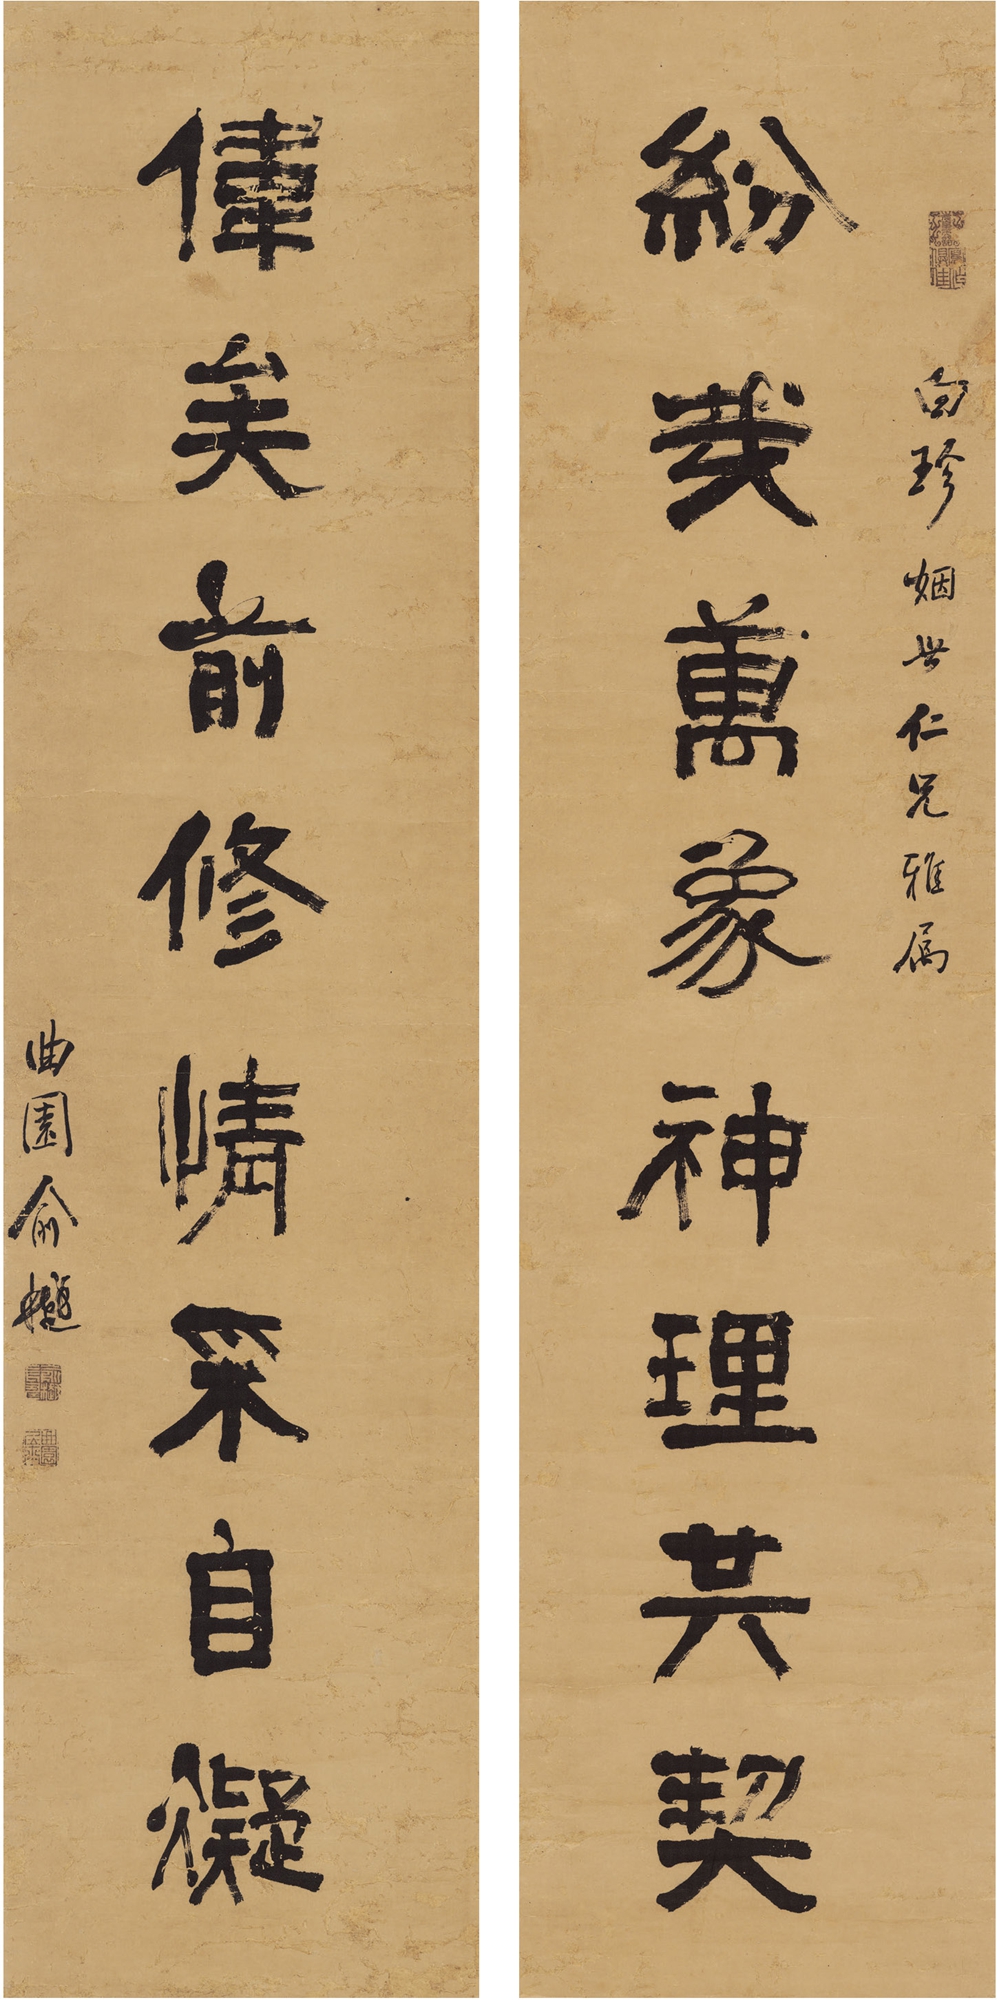 白珍姻世仁兄雅属
紛哉萬象神理共契
偉矣前修情采自凝
曲園俞樾